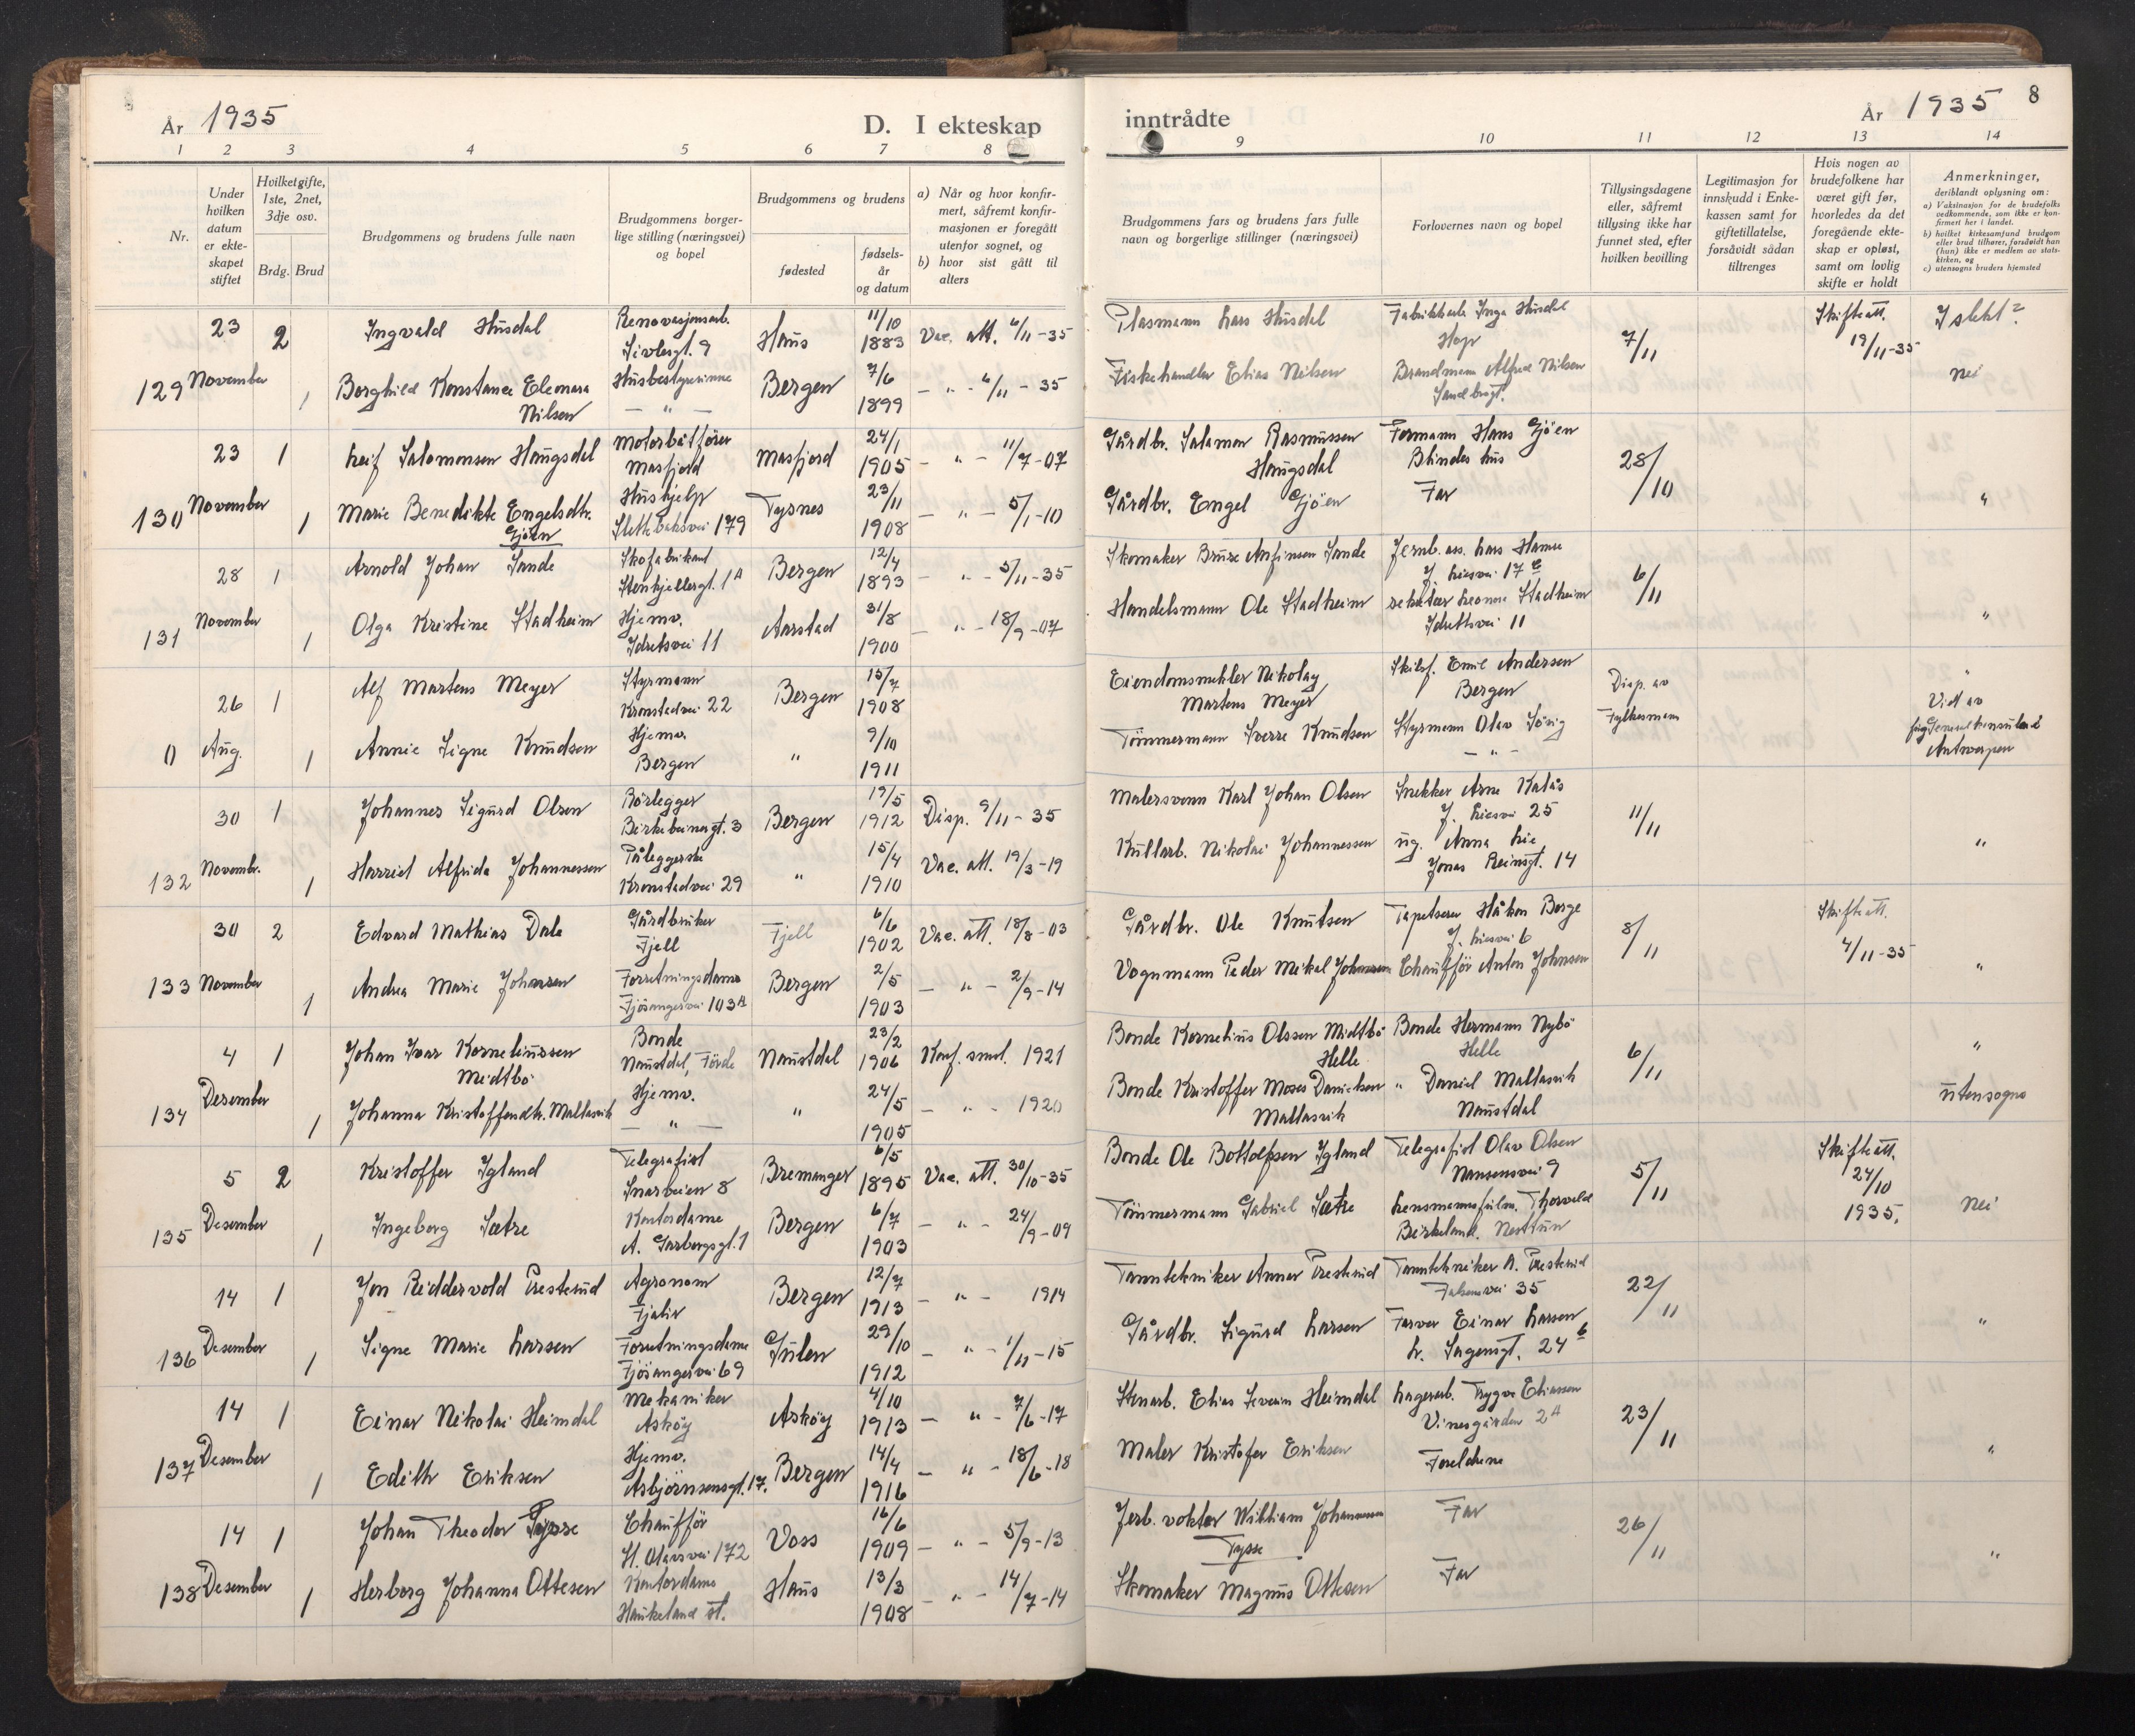 År 1935
D. I ekteskap
1 2 3 4 5 6 7 8
Nr.
Under hvilken datum er ekteskapet stiftet
Hvilket gifte, 1ste, 2net, 3dje osv.
Brdg. Brud
Brudgommens og brudens fulle navn
Brudgommens borgerlige stilling (næringsvei) og bopel
Brudgommens og brudens
fødested
fødselsår og datum
a) Når og hvor konfirmert, såfremt konfirmasjonen er foregått utenfor sognet, og
b) hvor sist gått til alters
129 23 November 2
Ingvald Husdal
Renovasjonsarb.
Haus
11/10 1883
Vac. att. 6/11-35
1 Borghild Konstance Eleonora Nilsen
Husbestyrerinne
— " —
Bergen
7/6 1899
— " — 6/11 - 35
130 23 November 1
Leif Salomonsen Haugsdal
Motorbåtfører
Masfjord
Masfjord
24/1 1905
— " — 11/7-07
1 Marie Benedikte Engelsdtr. Gjöen
Hushjelp
Slettebaksvei 179
Tysnes
23/11 1908
— " — 5/1-10
131 28 November 1
Arnold Johan Sande
Skofabrikant
Stenkjellergt. 1A
Bergen
12/4 1893
— " — 5/11-35
1 Olga Kristine Stadheim
Hjemv.
Idretsvei 11
Aarstad
31/8 1900
— " — 18/9-07
0 26 Aug. 1
Alf Martens Meyer
Styrmann
Kronstadvei 22
Bergen
15/7 1908
1 Annie Signe Knudsen
Hjemv.
Bergen
"
9/10 1911
132 30 Novembr. 1
Johannes Sigurd Olsen
Rörlegger
Birkebeinergt. 3
Bergen
19/5 1912
Disp. 9/11 - 35
1 Harriet Alfrida Johannessen
Påleggerske
Kronstadvei 29
"
15/4 1910
Vac. att. 19/3-19
133 30 November 2
Edvard Mathias Dale
Gårdbruker
Fjell
Fjell
6/6 1902
Vac. att. 18/8-03
1 Andrea Marie Johnsen
Forretningsdame
Fjösangervei 103A
Bergen
2/5 1903
— " — 2/9-14
134 4 Desember 1
Johan Ivar Korneliussen Midtbö
Bonde
Naustdal, Förde
Naustdal
23/2 1906
Konf. smst. 1921
1 Johanna Kristoffersdtr. Mallasvik
Hjemv.
— " —
"
24/5 1905
— " — 1920
135 5 Desember 2
Kristoffer Igland
Telegrafist
Snarveien 8
Bremanger
6/5 1895
Vac. att. 30/10-35
1 Ingeborg Sætre
Kontordame
A. Garborgsgt. 1
Bergen
6/7 1903
— " — 24/9-09
136 14 Desember 1
Jon Riddervold Presterud
Agronom
Fjaler
Bergen
12/7 1913
— " — 1914
1 Signe Marie Larsen
Forretningsdame
Fjösangervei 69
Gulen
29/10 1912
— " — 1/11-15
137 14 Desember 1
Einar Nikolai Heimdal
Mekaniker
Asköy
Asköy
4/10 1913
— " — 7/6-17
1 Edith Eriksen
Hjemv.
Asbjörnsensgt. 17.
Bergen
14/4 1916
— " — 18/6-18
138 14 Desember 1
Johan Theodor Tysse
Chaufför
St. Olavsvei 172
Voss
16/6 1909
— " — 5/9-13
1 Herborg Johanna Ottesen
Kontordame
Haukeland st.
Haus
13/3 1908
— " — 14/7-14
inntrådte
År 1935
8
9 10 11 12 13 14
Brudgommens fars og brudens fars fulle navn og borgerlige stillinger (næringsvei)
Forlovernes navn og bopel
Tillysingsdagene eller, såfremt tillysing ikke har funnet sted, efter hvilken bevilling
Legitimasjon for innskudd i Enkekassen samt for giftetillatelse, forsåvidt sådan tiltrenges
Hvis nogen av brudefolkene har været gift før, hvorledes da det foregående ekteskap er opløst, samt om lovlig skifte er holdt
Anmerkninger,
deriblandt oplysning om:
a) Vaksinasjon for de brudefolks vedkommende, som ikke er konfirmert her i landet.
b) hvilket kirkesamfund brudgom eller brud tilhører, forsåvidt han (hun) ikke er medlem av statskirken, og
c) utensogns bruders hjemsted
Plasmann Lars Husdal
Fabrikkarb. Inga Husdal
Hop
7/11
Skifteatt.
19/11-35
I slekt?
Fiskehandler Elias Nilsen
Brandmann Alfred Nilsen
Sandbrogt.
nei
Gårdbr. Salamon Rasmussen Haugsdal
Formann Hans Gjöen
Blindes hus
28/10
Gårdbr. Engel Gjöen
Far
"
Skomaker Bruse Anfinsen Sande
Jernb. ass. Lars Hamre
J. Liesvei 17
6/11
Handelsmann Ole Stadheim
sekretær Leonora Stadheim
Idrettsvei 11
"
Eiendomsmekler Nikolay Martens Meyer
Skibsf. Emil Andersen
Bergen
Disp. av
Fylkesmann
"
Tömmermann Sverre Knudsen
Styrmann Olav Sövig
— " —
Vid av
Generalkonsulat
Antwerpen
Malersvenn Karl Johan Olsen
Snekker Arne Kalås
J. Liesvei 25
11/11
Kullarb. Nikolai Johannessen
ug. Anna Lie
Jonas Reinsgt. 14
"
Gårdbr. Ole Knutsen
Tapetserer Håkon Berge
J. Liesvei 6
8/11
Skifteatt.
4/11-35
Vognmann Peder Mikal Johnsen
Chauffför Anton Johnsen
"
Bonde Kornelius Olssen Midtbö
Helle
Bonde Hermann Nybö
Helle
6/11
"
Bonde Kristoffer Moses Danielsen Mallasvik
" Daniel Mallasvik
Naustdal
utensogns
Bonde Ole Bottolfsen Igland
Telegrafist Olav Olsen
Nansensvei 9
5/11
Skifteatt.
24/10
1935.
Tömmermann Gabriel Sætre
Lensmannsfullm. Thorvald
Birkeland. Nesttun
nei
Tanntekniker Annar Presterud
Tanntekniker A. Presterud
Falsensvei 35
22/11
Gårdbr. Sigurd Larsen
Farver Einar Larsen
L. Sagensgt. 24 b
"
Stenarb. Elias Severin Heimdal
Lagerarb. Trygve Eliassen
Vinesgården 2A
23/11
Maler Kristofer Eriksen
Foreldrene
"
Jerb. vokter William Johannessen
Tysse
Far
26/11
Skomaker Magnus Ottesen
Far
"